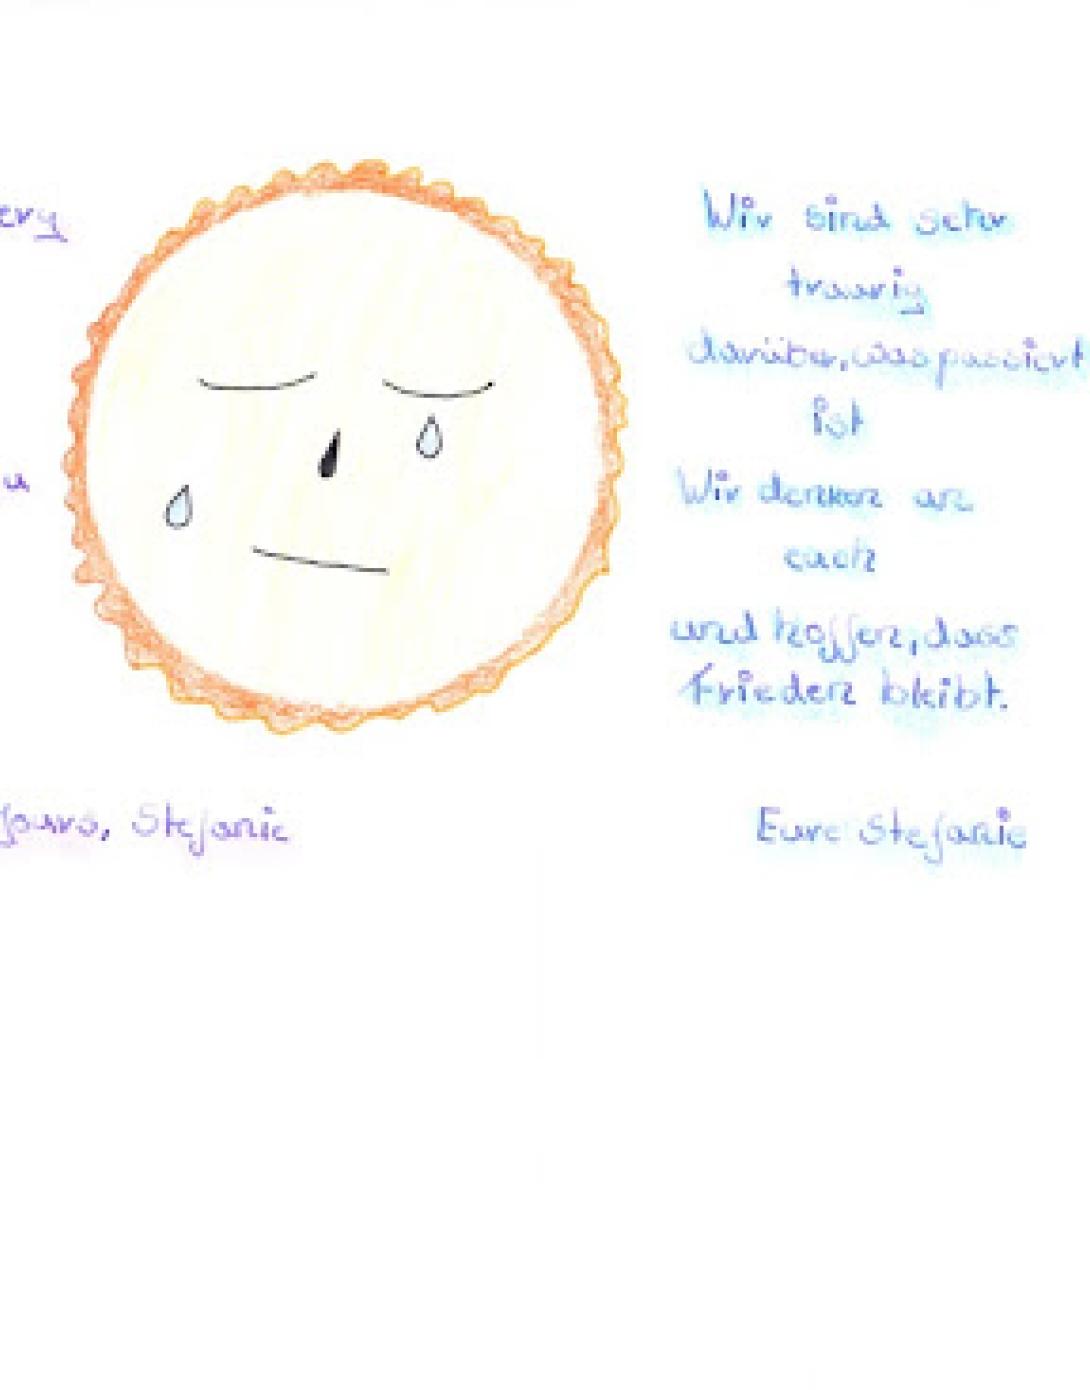 ery
u
Yours, Stefanie
Wir sind sehr
traurig
darüber, was passiert
ist
Wir denken an
euch
und hoffen, dass
Frieden bleibt.
Eure Stefanie